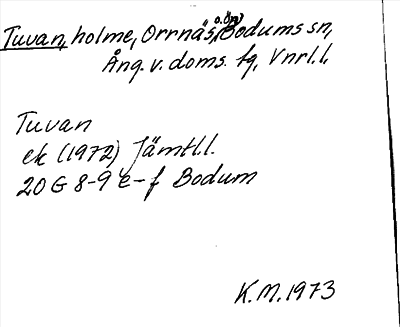 Tuvan, holme, Orrnäs, Bodums sn,
Ång. v. doms. fg, Vnrl. l.
Tuvan
ek (1972) Jämtl. l.
20 G 8-9 e-f Bodum
K. M. 1973